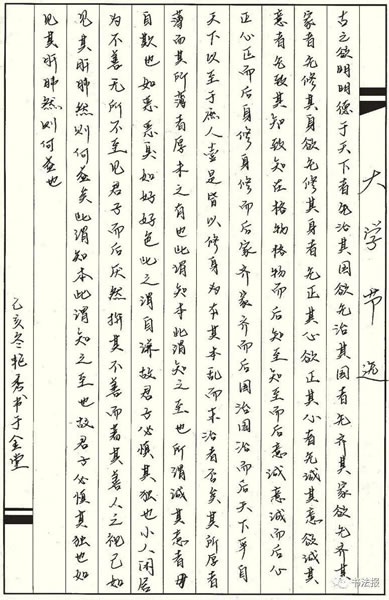 大学节选
古之欲明明德于天下者先治其国欲先治其国者先齐其家欲先齐其
家者先修其身欲先修其身者先正其心欲正其心者先诚其意欲诚其
意者先致其知致知在格物格物而后知至知至而后意诚意诚而后心
正心正而后身修身修而后家齐家齐而后国治国治而后天下平自
天下以至于庶人壹是皆以修身为本其本乱而末治者否矣其所厚者
薄而其所薄者厚未之有也此谓知本此谓知之至也所谓诚其意者毋
自欺也如恶恶臭如好好色此之谓自谦故君子必慎其独也小人闲居
为不善无所不至见君子而后厌然掩其不善而著其善人之视己如
见其肝肺然则何益矣此谓知本此谓知之至也故君子必慎其独也如
见其肝肺然则何益也
乙亥冬艳秀书于金堂
书法报